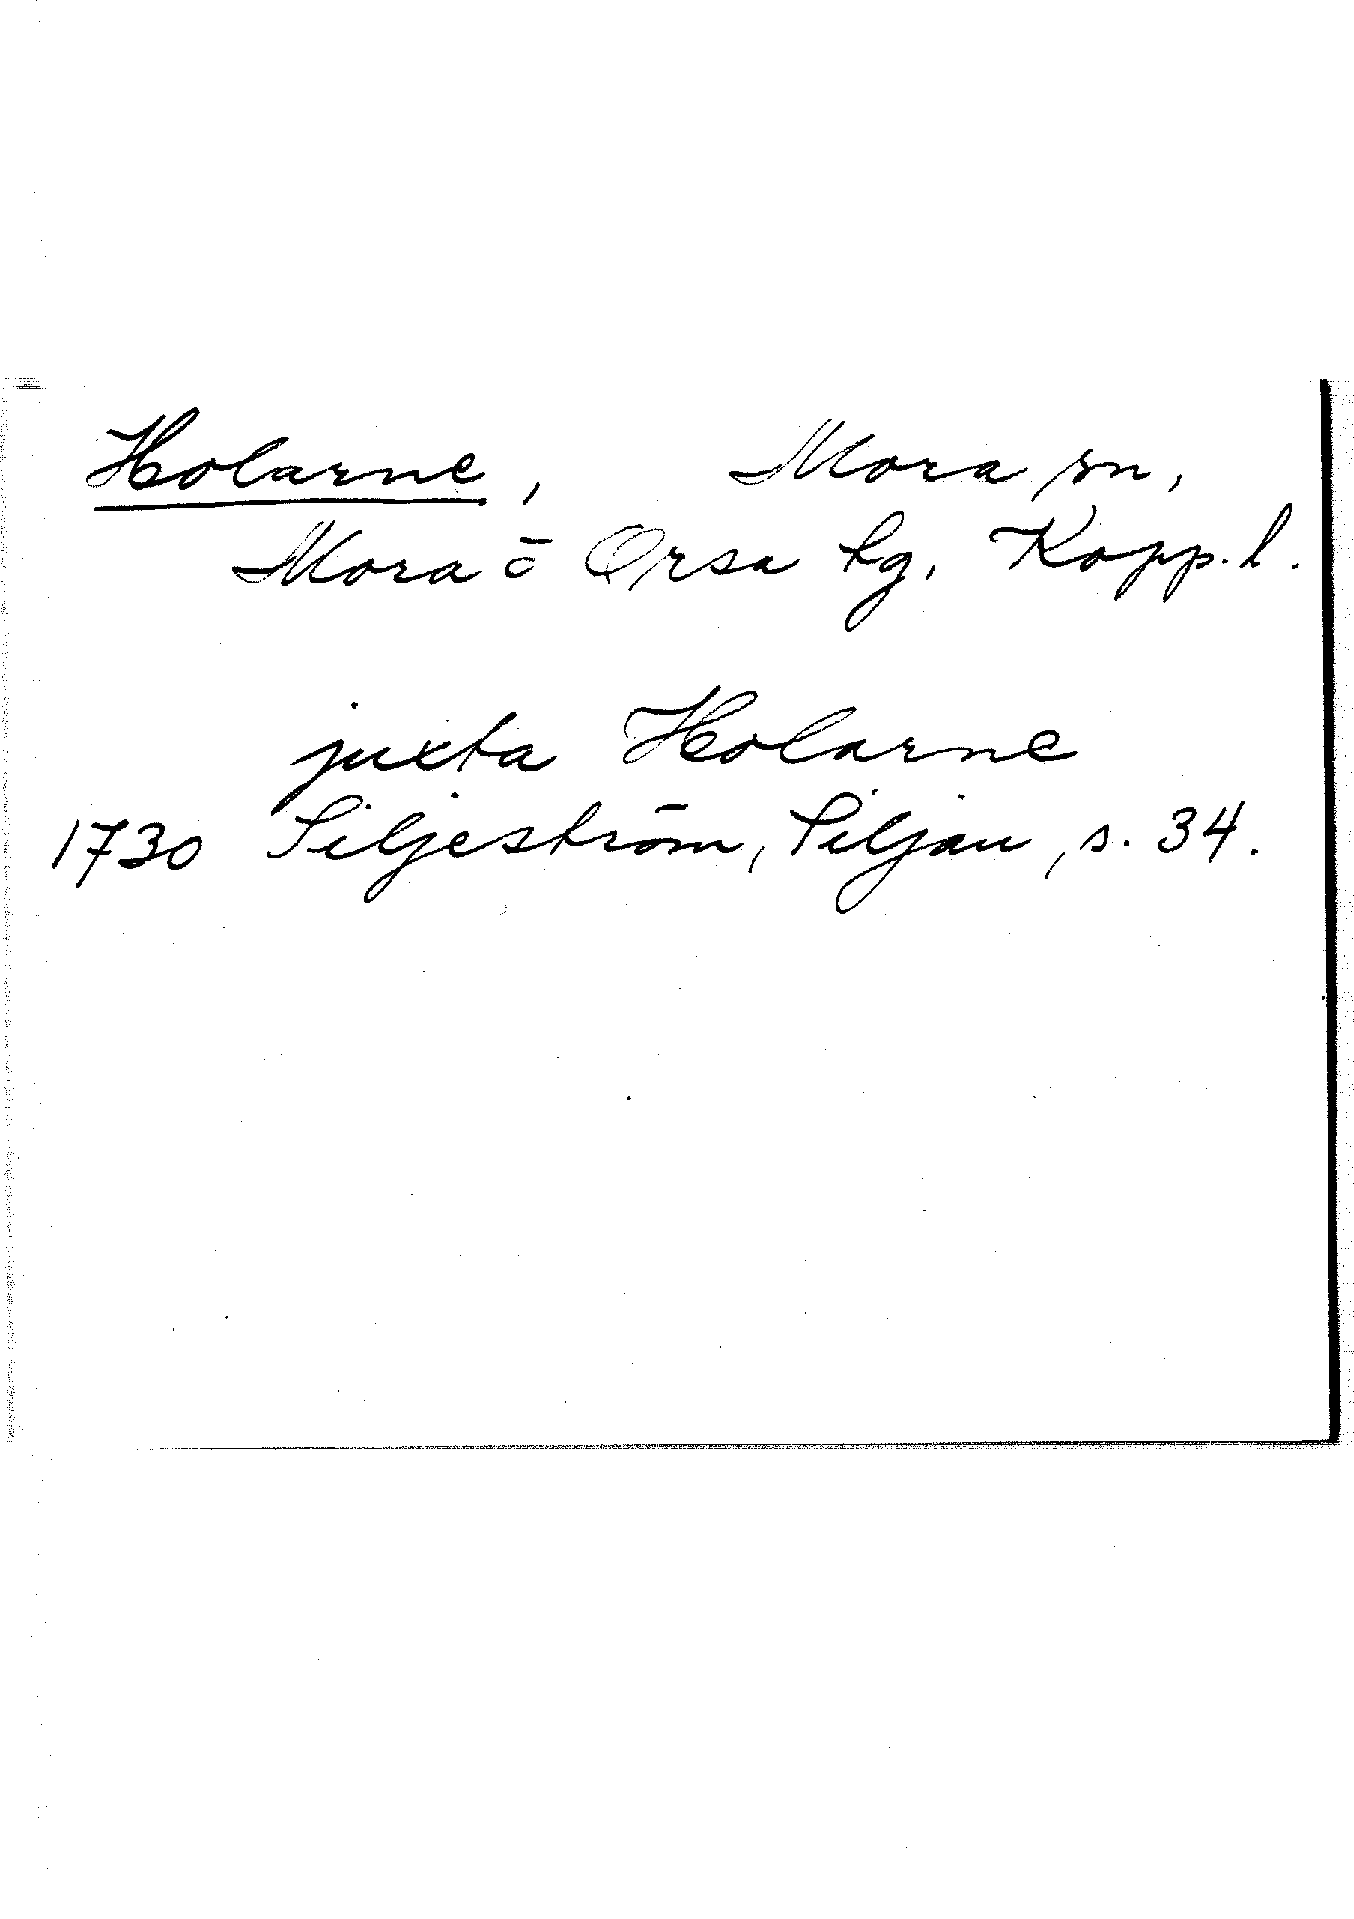 Holarne, Mora sn,
Mora o Orsa tg, Kopp. l.
juxta Holarne
1730 Siljeström, Siljan, s. 34.